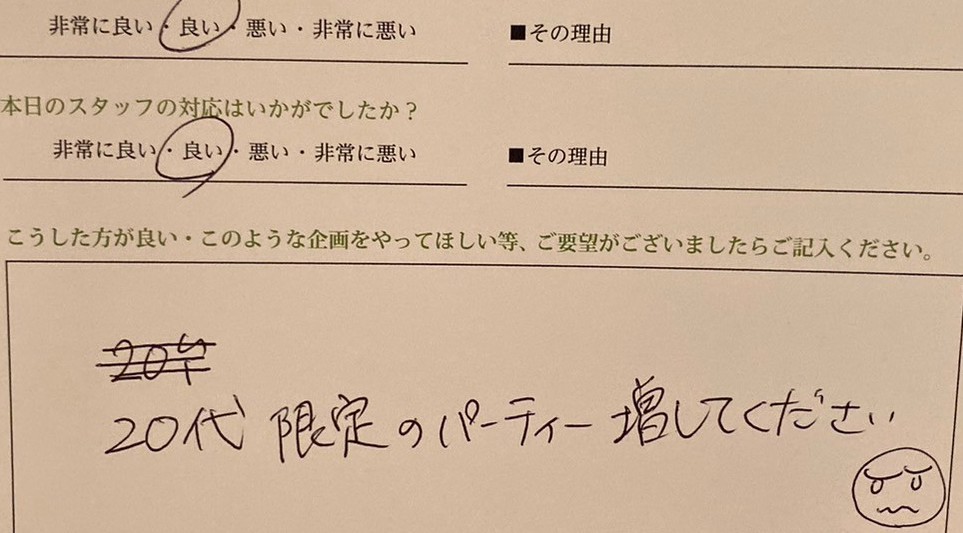 非常に良い・良い・悪い・非常に悪い
■その理由
本日のスタッフの対応はいかがでしたか？
非常に良い・良い・悪い・非常に悪い
■その理由
こうした方が良い・このような企画をやってほしい等、ご要望がございましたらご記入ください。
20代限定のパーティー増してください